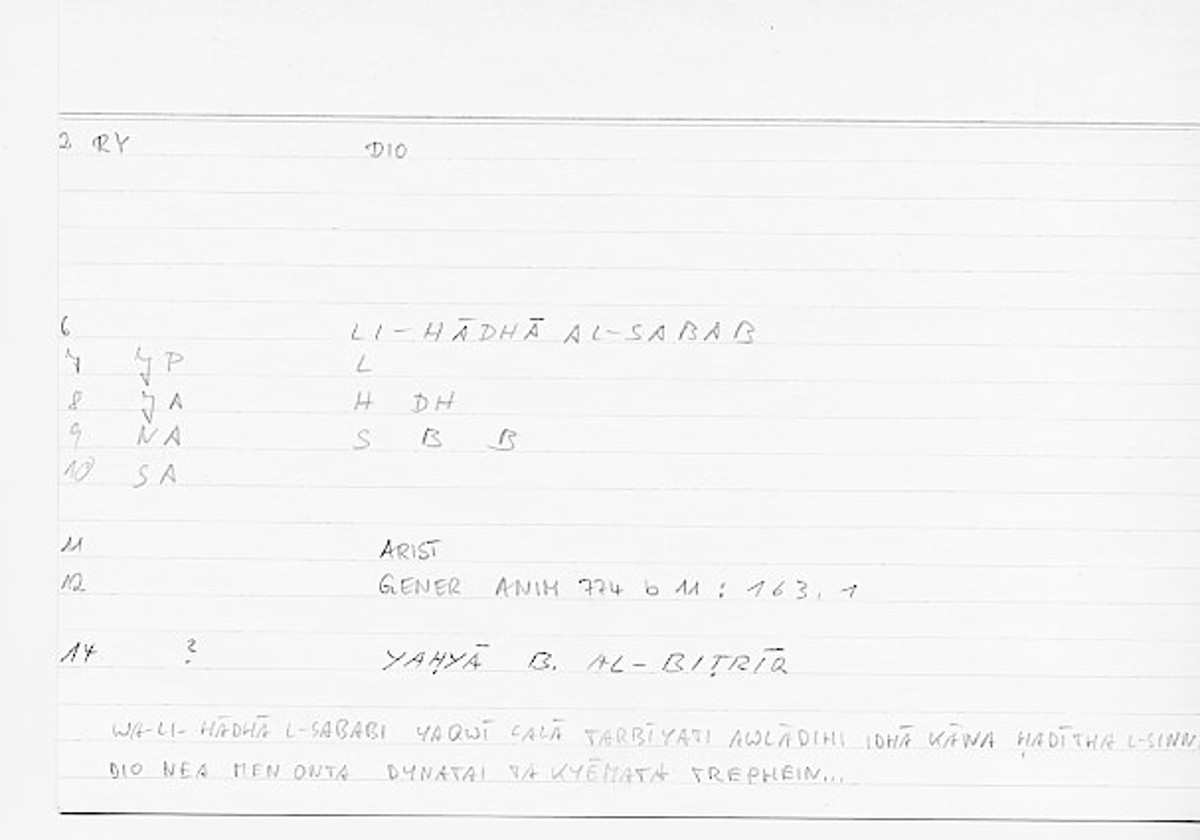 2 RY DIO
6 LI-HĀDHĀ AL-SABAB
7 JP L
8 JA H DH
9 NA S B B
10 SA
11 ARIST
12 GENER ANIM 774 b 11 : 163, 1
14 ? YAḤYĀ B. AL-BIṬRĪQ
WA-LI-HĀDHĀ L-SABABI YAQWĪ CALĀ TARBĪYATI AWLĀDIHI IDHĀ KĀNA ḤADĪTHA L-SINN
DIO NEA MEN ONTA DYNATAI TA KYĒMATA TREPHEIN...